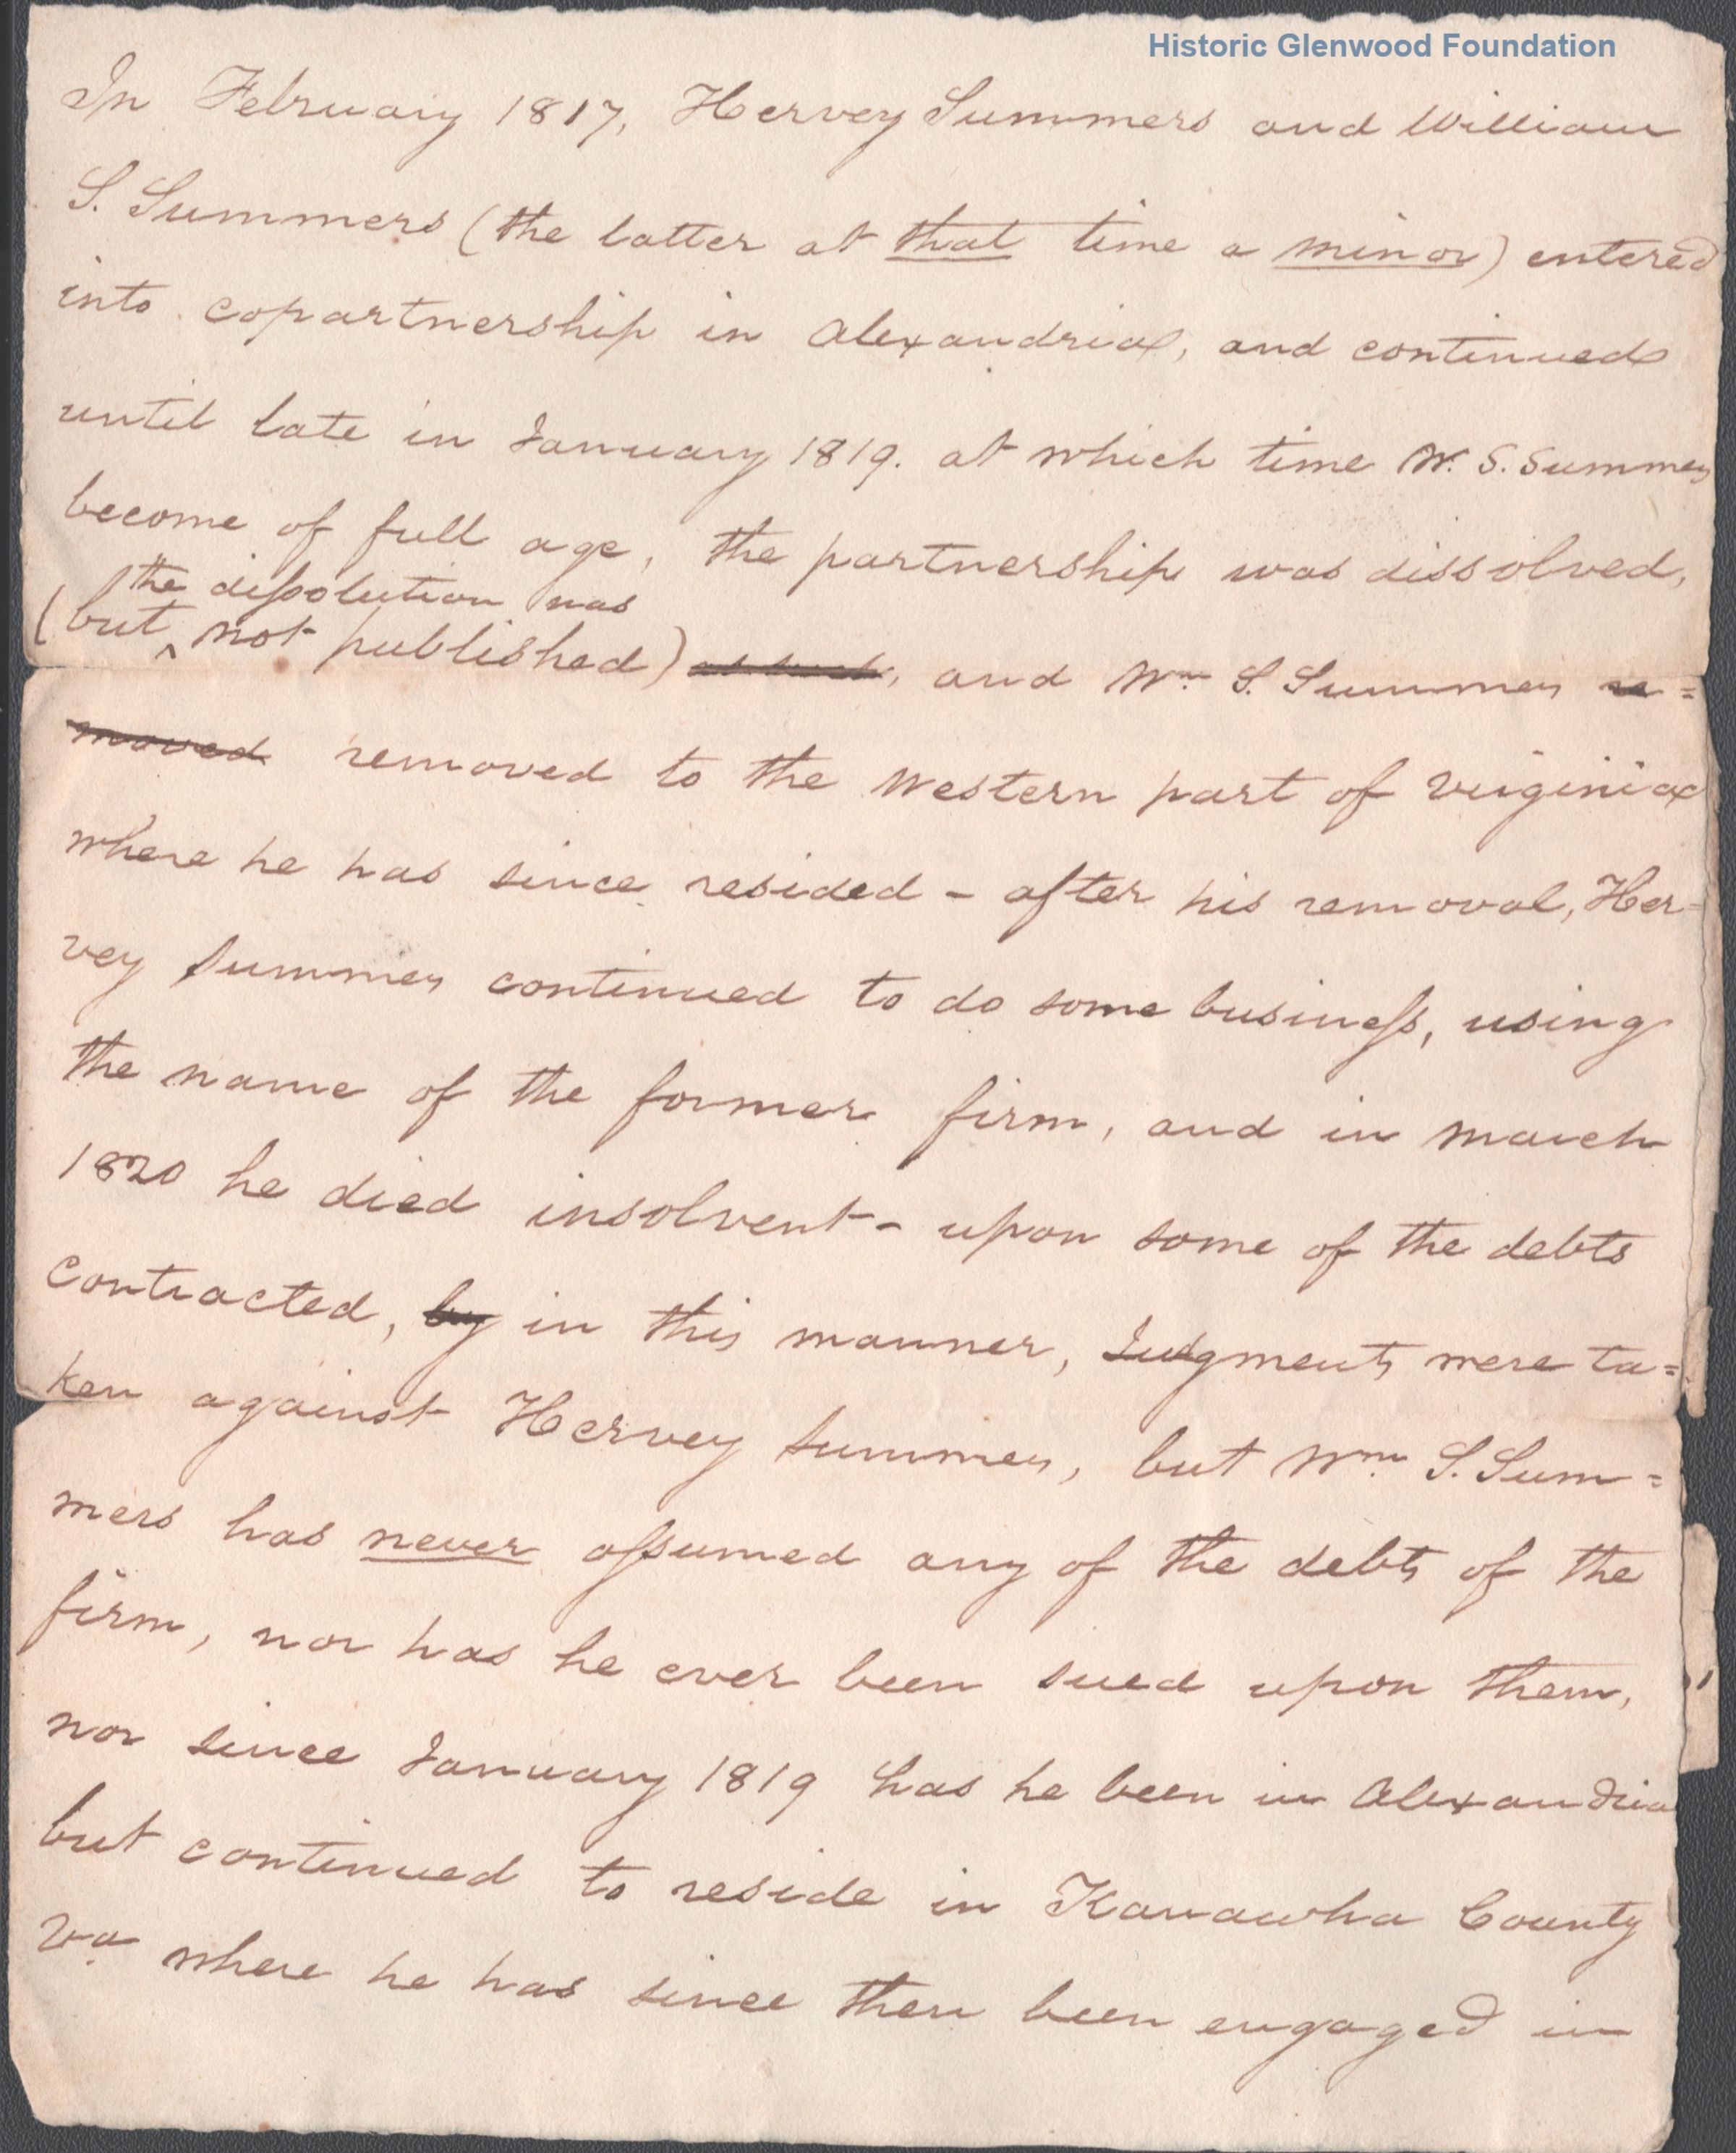 Historic Glenwood Foundation
In February 1817, Hervey Summers and William
S. Summers (the latter at that time a minor) entered
into copartnership in Alexandria, and continued
until late in January 1819. at which time W. S. Summers
become of full age, the partnership was dissolved,
the dissolution was
(but ^ not published) , and Wm S. Summers re=
moved removed to the Western part of Virginia
where he has since resided - after his removal, Her=
vey Summers continued to do some business, using
the name of the former firm, and in March
1820 he died insolvent - upon some of the debts
contracted, by in this manner, Judgments were ta=
ken against Hervey Summers, but Wm S. Sum=
mers has never assumed any of the debts of the
firm, nor has he ever been sued upon them,
nor since January 1819 has he been in Alexandria
but continued to reside in Kanawha County
Va where he has since then been engaged in